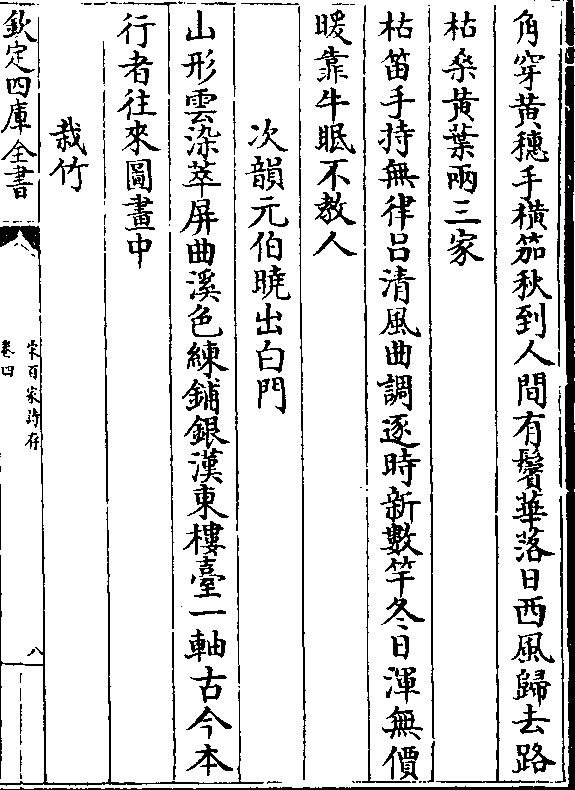 角穿黄穗手橫笳秋到人間有鬢華落日西風歸去路
枯桑黄葉兩三家
枯笛手持無律吕清風曲調逐時新數竿冬日渾無價
暖靠牛眠不教人
次韻元伯曉出白門
山形雲染萃屏曲溪色練鋪銀漢東樓臺一軸古今本
行者往來圖畫中
栽竹
欽定四庫全書
宋百家詩存
卷四
八